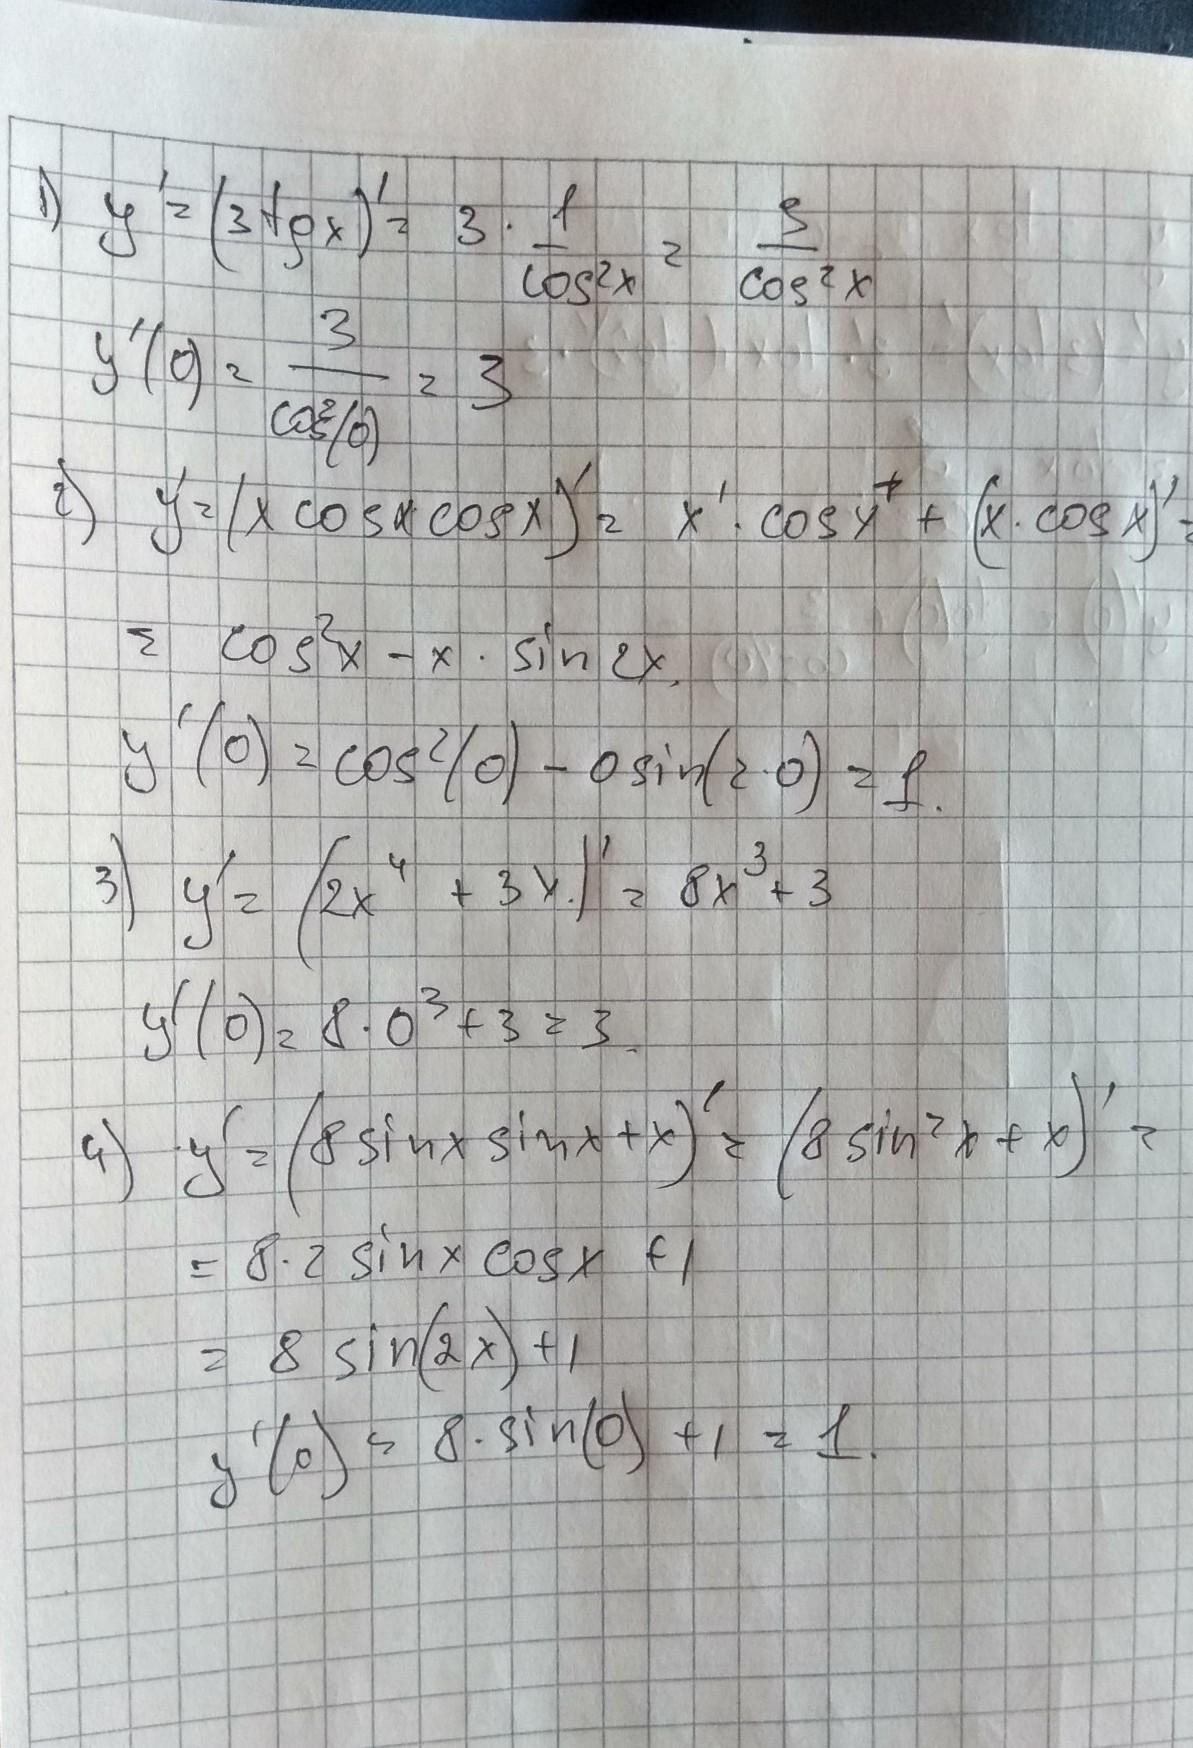 1) y' = (3tgx)' = 3 · 1/cos²x = 3/cos²x
y'(0) = 3/cos²(0) = 3
2) y' = (x cosx cosx)' = x' · cosx + (x · cosx)' =
= cos²x - x · sin 2x.
y'(0) = cos²(0) - 0 sin(2·0) = 1.
3) y' = (2x⁴ + 3x)' = 8x³ + 3
y'(0) = 8 · 0³ + 3 = 3.
4) y' = (8 sinx sinx + x)' = (8 sin²x + x)' =
= 8·2 sinx cosx + 1
= 8 sin(2x) + 1
y'(0) = 8 · sin(0) + 1 = 1.